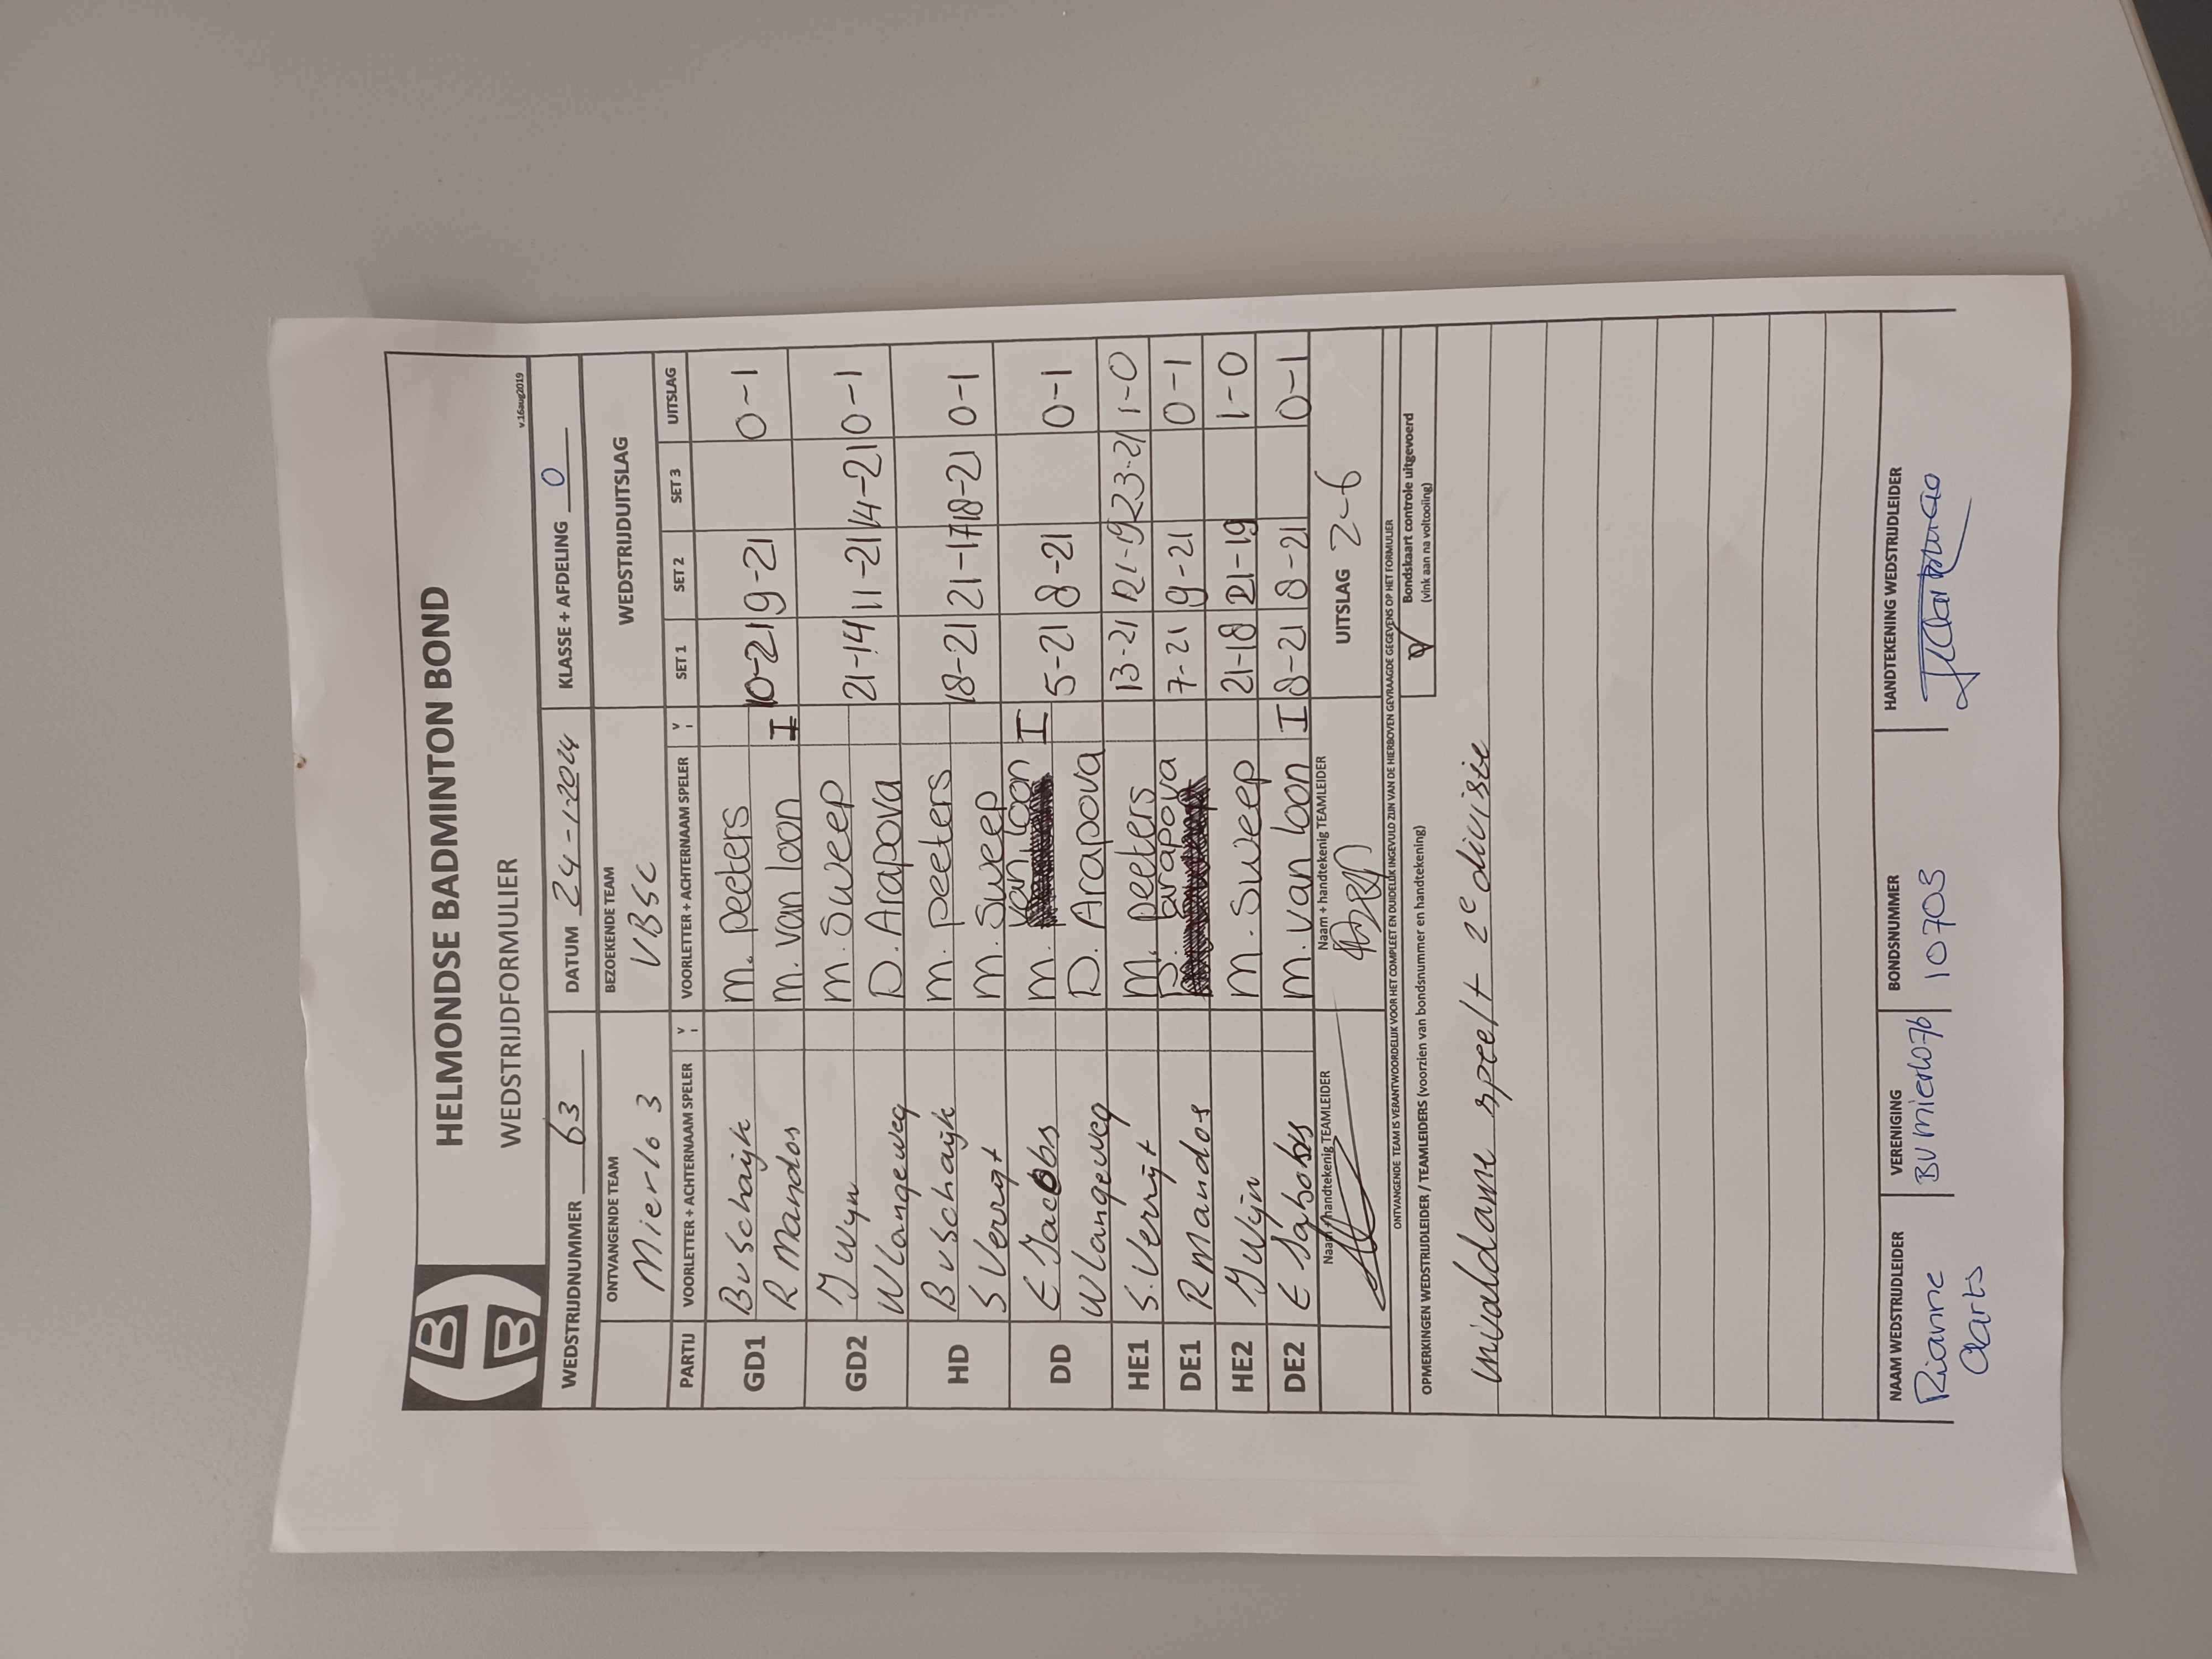 HELMONDSE BADMINTON BOND
WEDSTRIJDFORMULIER
v.16aug2019
WEDSTRIJDNUMMER 63 DATUM 24-1-2024 KLASSE + AFDELING 0
ONTVANGENDE TEAM BEZOEKENDE TEAM WEDSTRIJDUITSLAG
Mierlo 3 VBSC
PARTIJ VOORLETTER + ACHTERNAAM SPELER V I VOORLETTER + ACHTERNAAM SPELER V I SET 1 SET 2 SET 3 UITSLAG
GD1 B v Schaijk M. peeters 10-21 9-21 0-1
R Mandos M. van loon I
GD2 J Wyn M. Sweep 21-14 11-21 14-21 0-1
W Langeweg D. Arapova
HD B v Schaijk M. peeters 18-21 21-17 18-21 0-1
S Verrijt M. Sweep
DD E Jacobs M. van loon I 5-21 8-21 0-1
W Langeweg D. Arapova
HE1 S. Verrijt M. peeters 13-21 21-19 23-21 1-0
DE1 R Mandos D. arapova 7-21 9-21 0-1
HE2 J Wijn M. Sweep 21-18 21-19 1-0
DE2 E Jacobs M. van loon I 8-21 8-21 0-1
Naam + handtekenig TEAMLEIDER Naam + handtekenig TEAMLEIDER UITSLAG 2-6
ONTVANGENDE TEAM IS VERANTWOORDELIJK VOOR HET COMPLEET EN DUIDELIJK INGEVULD ZIJN VAN DE HIERBOVEN GEVRAAGDE GEGEVENS OP HET FORMULIER
OPMERKINGEN WEDSTRIJDLEIDER / TEAMLEIDERS (voorzien van bondsnummer en handtekening)
Bondskaart controle uitgevoerd
(vink aan na voltooiing)
invaldame speelt 2e divisie
NAAM WEDSTRIJDLEIDER VERENIGING BONDSNUMMER HANDTEKENING WEDSTRIJDLEIDER
Rianne BV mierlo76 10703
Aarts